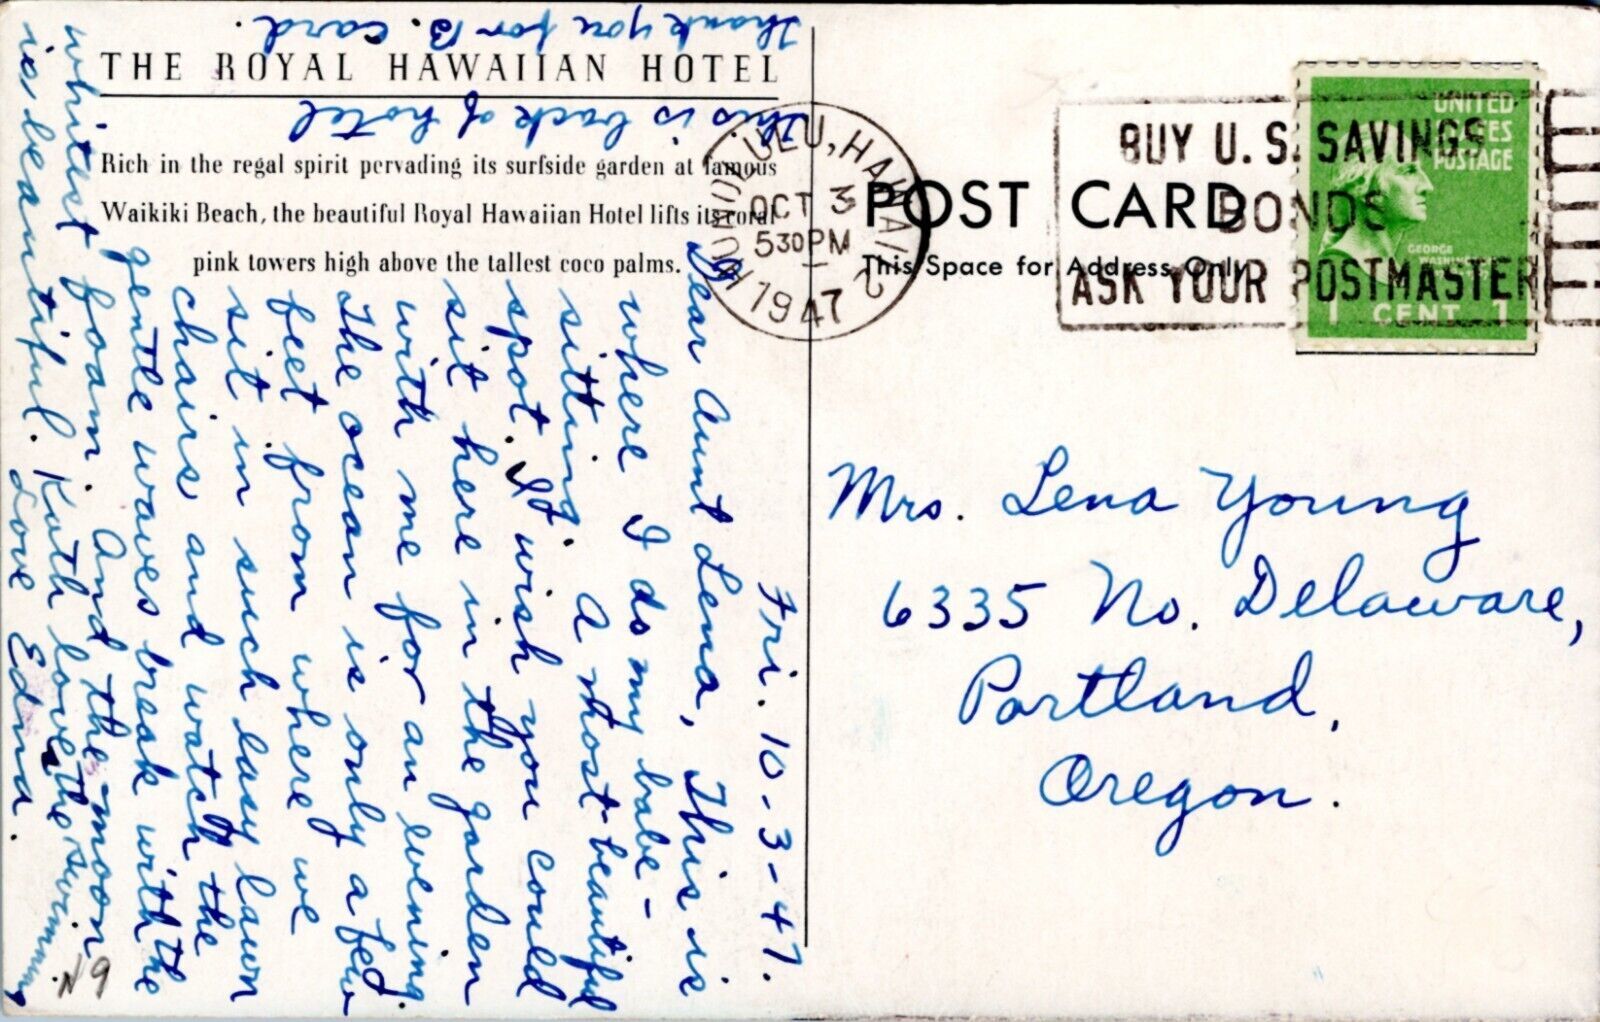 THE ROYAL HAWAIIAN HOTEL
Rich in the regal spirit pervading its surfside garden at famous
Waikiki Beach, the beautiful Royal Hawaiian Hotel lifts its coral
pink towers high above the tallest coco palms.
Thank you for B. Card.
This is back of hotel
Fri. 10-3-47.
Dear Aunt Lena, This is
where I do my babe-
sitting. A most beautiful
spot. I wish you could
sit here in the garden
with me for an evening.
The ocean is only a few
feet from where we
sit in such easy lawn
chairs and watch the
gentle waves break with the
whitest foam. And the moon
is beautiful. Kath loves the swimming.
Love Edna.
N9
HONOLULU, HAWAII 2
OCT 3
530PM
1947
BUY U.S. SAVINGS
BONDS
ASK YOUR POSTMASTER
UNITED
STATES
POSTAGE
GEORGE
WASHINGTON
1 CENT 1
POST CARD
This Space for Address Only
Mrs. Lena Young
6335 No. Delaware,
Portland,
Oregon.